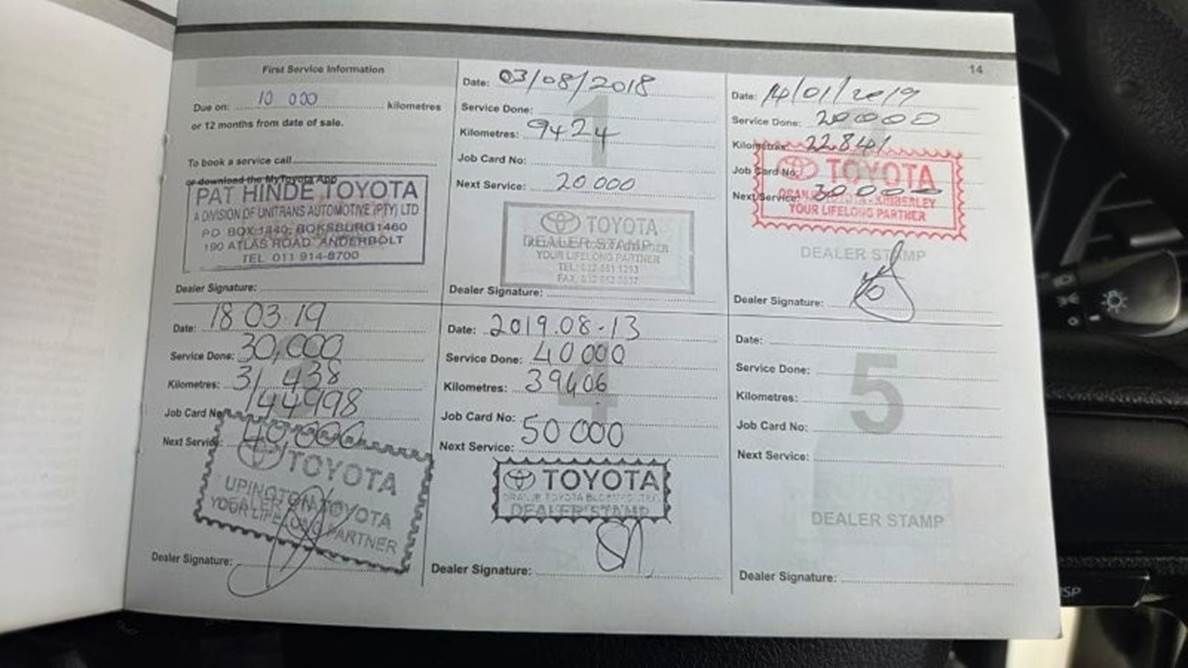 14
First Service Information
Due on: 10 000 kilometres
or 12 months from date of sale.
To book a service call
or download the MyToyota App
PAT HINDE TOYOTA
A DIVISION OF UNITRANS AUTOMOTIVE (PTY) LTD
PO BOX 1840, BOKSBURG 1460
190 ATLAS ROAD ANDERBOLT
TEL 011 914-8700
Dealer Signature:
1
Date: 03/08/2018
Service Done:
Kilometres: 9424
Job Card No:
Next Service: 20 000
TOYOTA
DEALER STAMP
YOUR LIFELONG PARTNER
Dealer Signature:
Date: 14/01/2019
Service Done: 20000
Kilometres: 22841
Job Card No:
Next Service: 30000
TOYOTA
YOUR LIFELONG PARTNER
DEALER STAMP
Dealer Signature:
Date: 18 03 19
Service Done: 30,000
Kilometres: 31 438
Job Card No: 144998
Next Service: 40,000
TOYOTA
UPINGTON TOYOTA
DEALER STAMP
YOUR LIFELONG PARTNER
Dealer Signature:
4
Date: 2019.08-13
Service Done: 40000
Kilometres: 39406
Job Card No:
Next Service: 50 000
TOYOTA
DEALER STAMP
Dealer Signature:
5
Date:
Service Done:
Kilometres:
Job Card No:
Next Service:
DEALER STAMP
Dealer Signature: